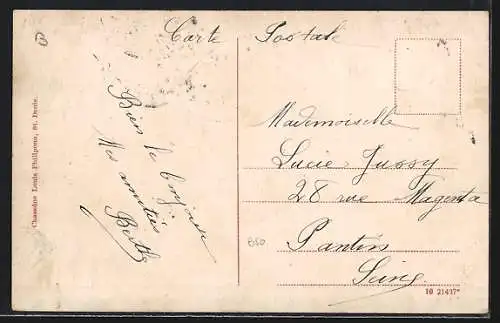 Carte Postale
Bien le bonjour
Mes amitiés
Berthe
Mademoiselle
Lucie Jussy
28 rue Magenta
Pantin
Seine
Chassaine Louis Phillipone, St. Denis.
16 21437*